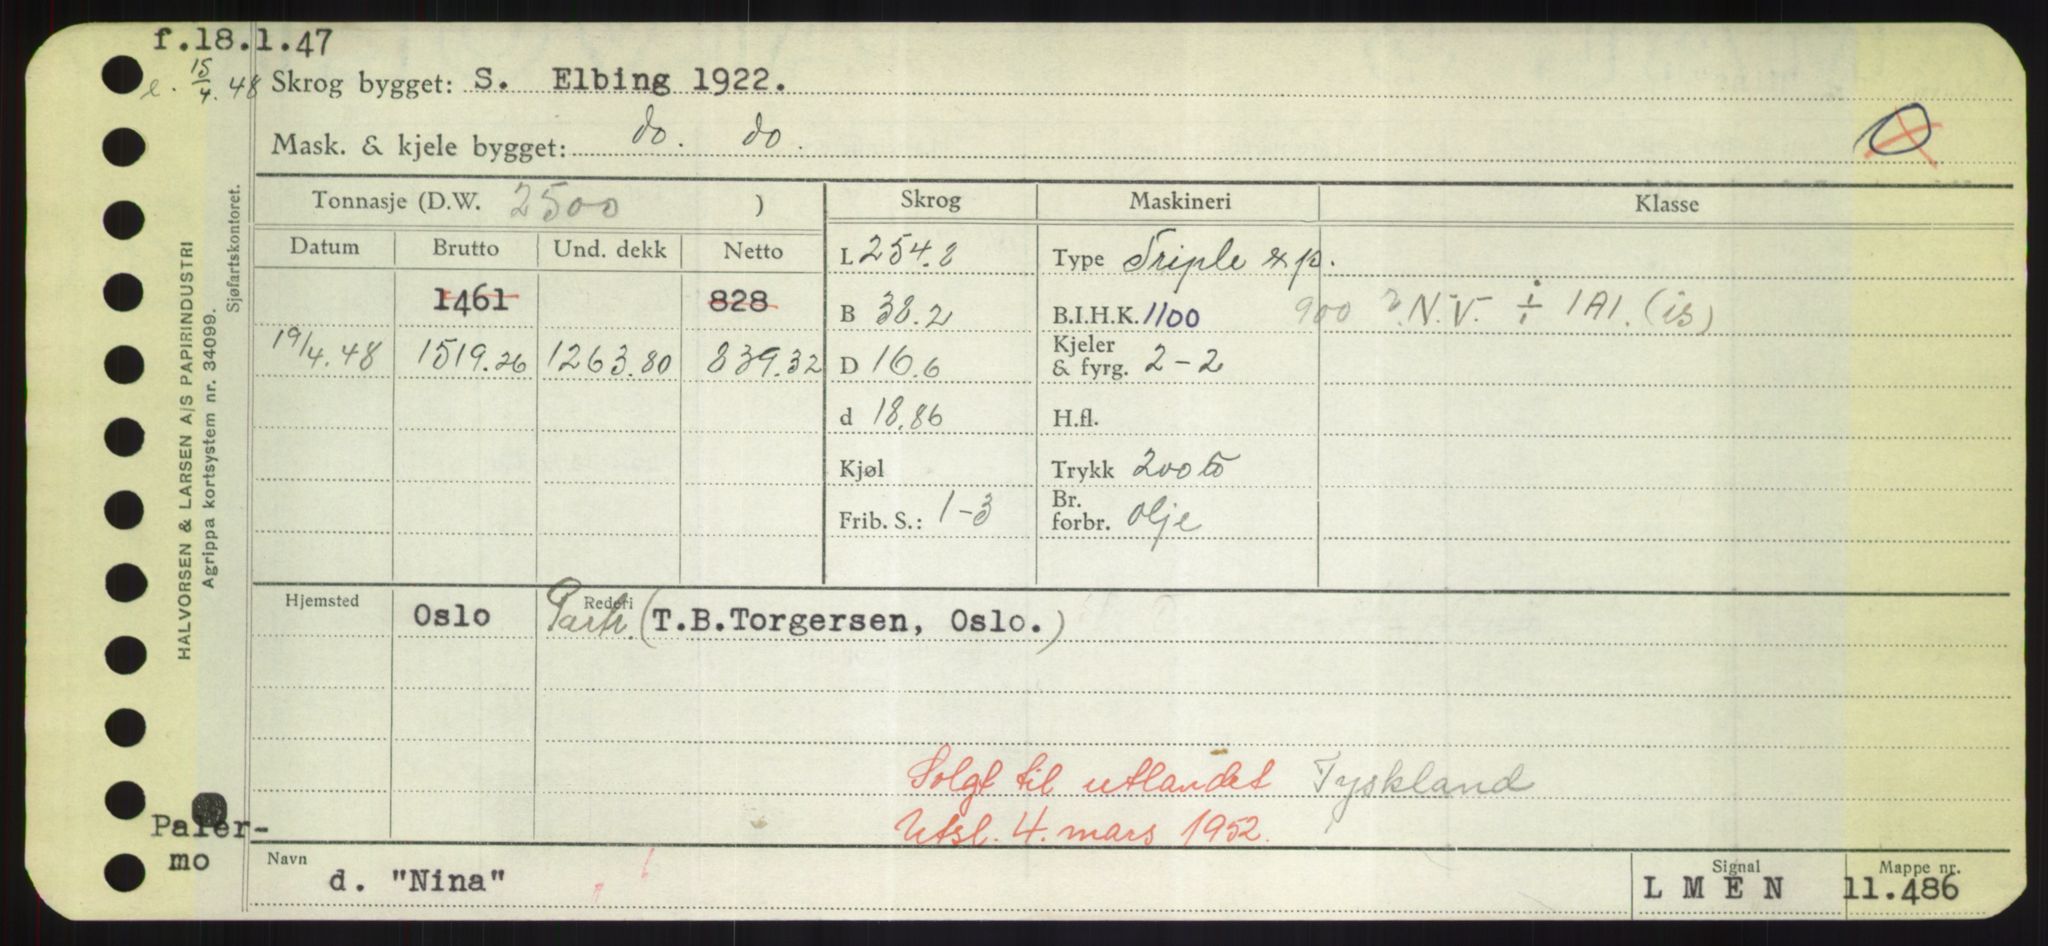 f.18.1.47
e. 15/4.48 Skrog bygget: S. Elbing 1922.
Mask. & kjele bygget: do. do.
Tonnasje (D.W. 2500 ) Skrog Maskineri Klasse
Datum Brutto Und. dekk Netto L 254.8 Type Triple exp.
1461 828 B 38.2 B.I.H.K. 1100 900 ? N.V. ÷ 1A1. (is)
19/4.48 1519.26 1263.80 839.32 D 16.6 Kjeler & fyrg. 2-2
d 18.86 H.fl.
Kjøl Trykk 200 lb
Frib. S.: 1-3 Br. forbr. olje
Hjemsted Oslo Rederi Partr. (T.B.Torgersen, Oslo.)
Solgt til utlandet Tyskland
Utsl. 4. mars 1952.
Palermo
Navn d. "Nina" Signal L M E N Mappe nr. 11.486
HALVORSEN & LARSEN A/S PAPIRINDUSTRI
Agrippa kortsystem nr. 34099.
Sjøfartskontoret.